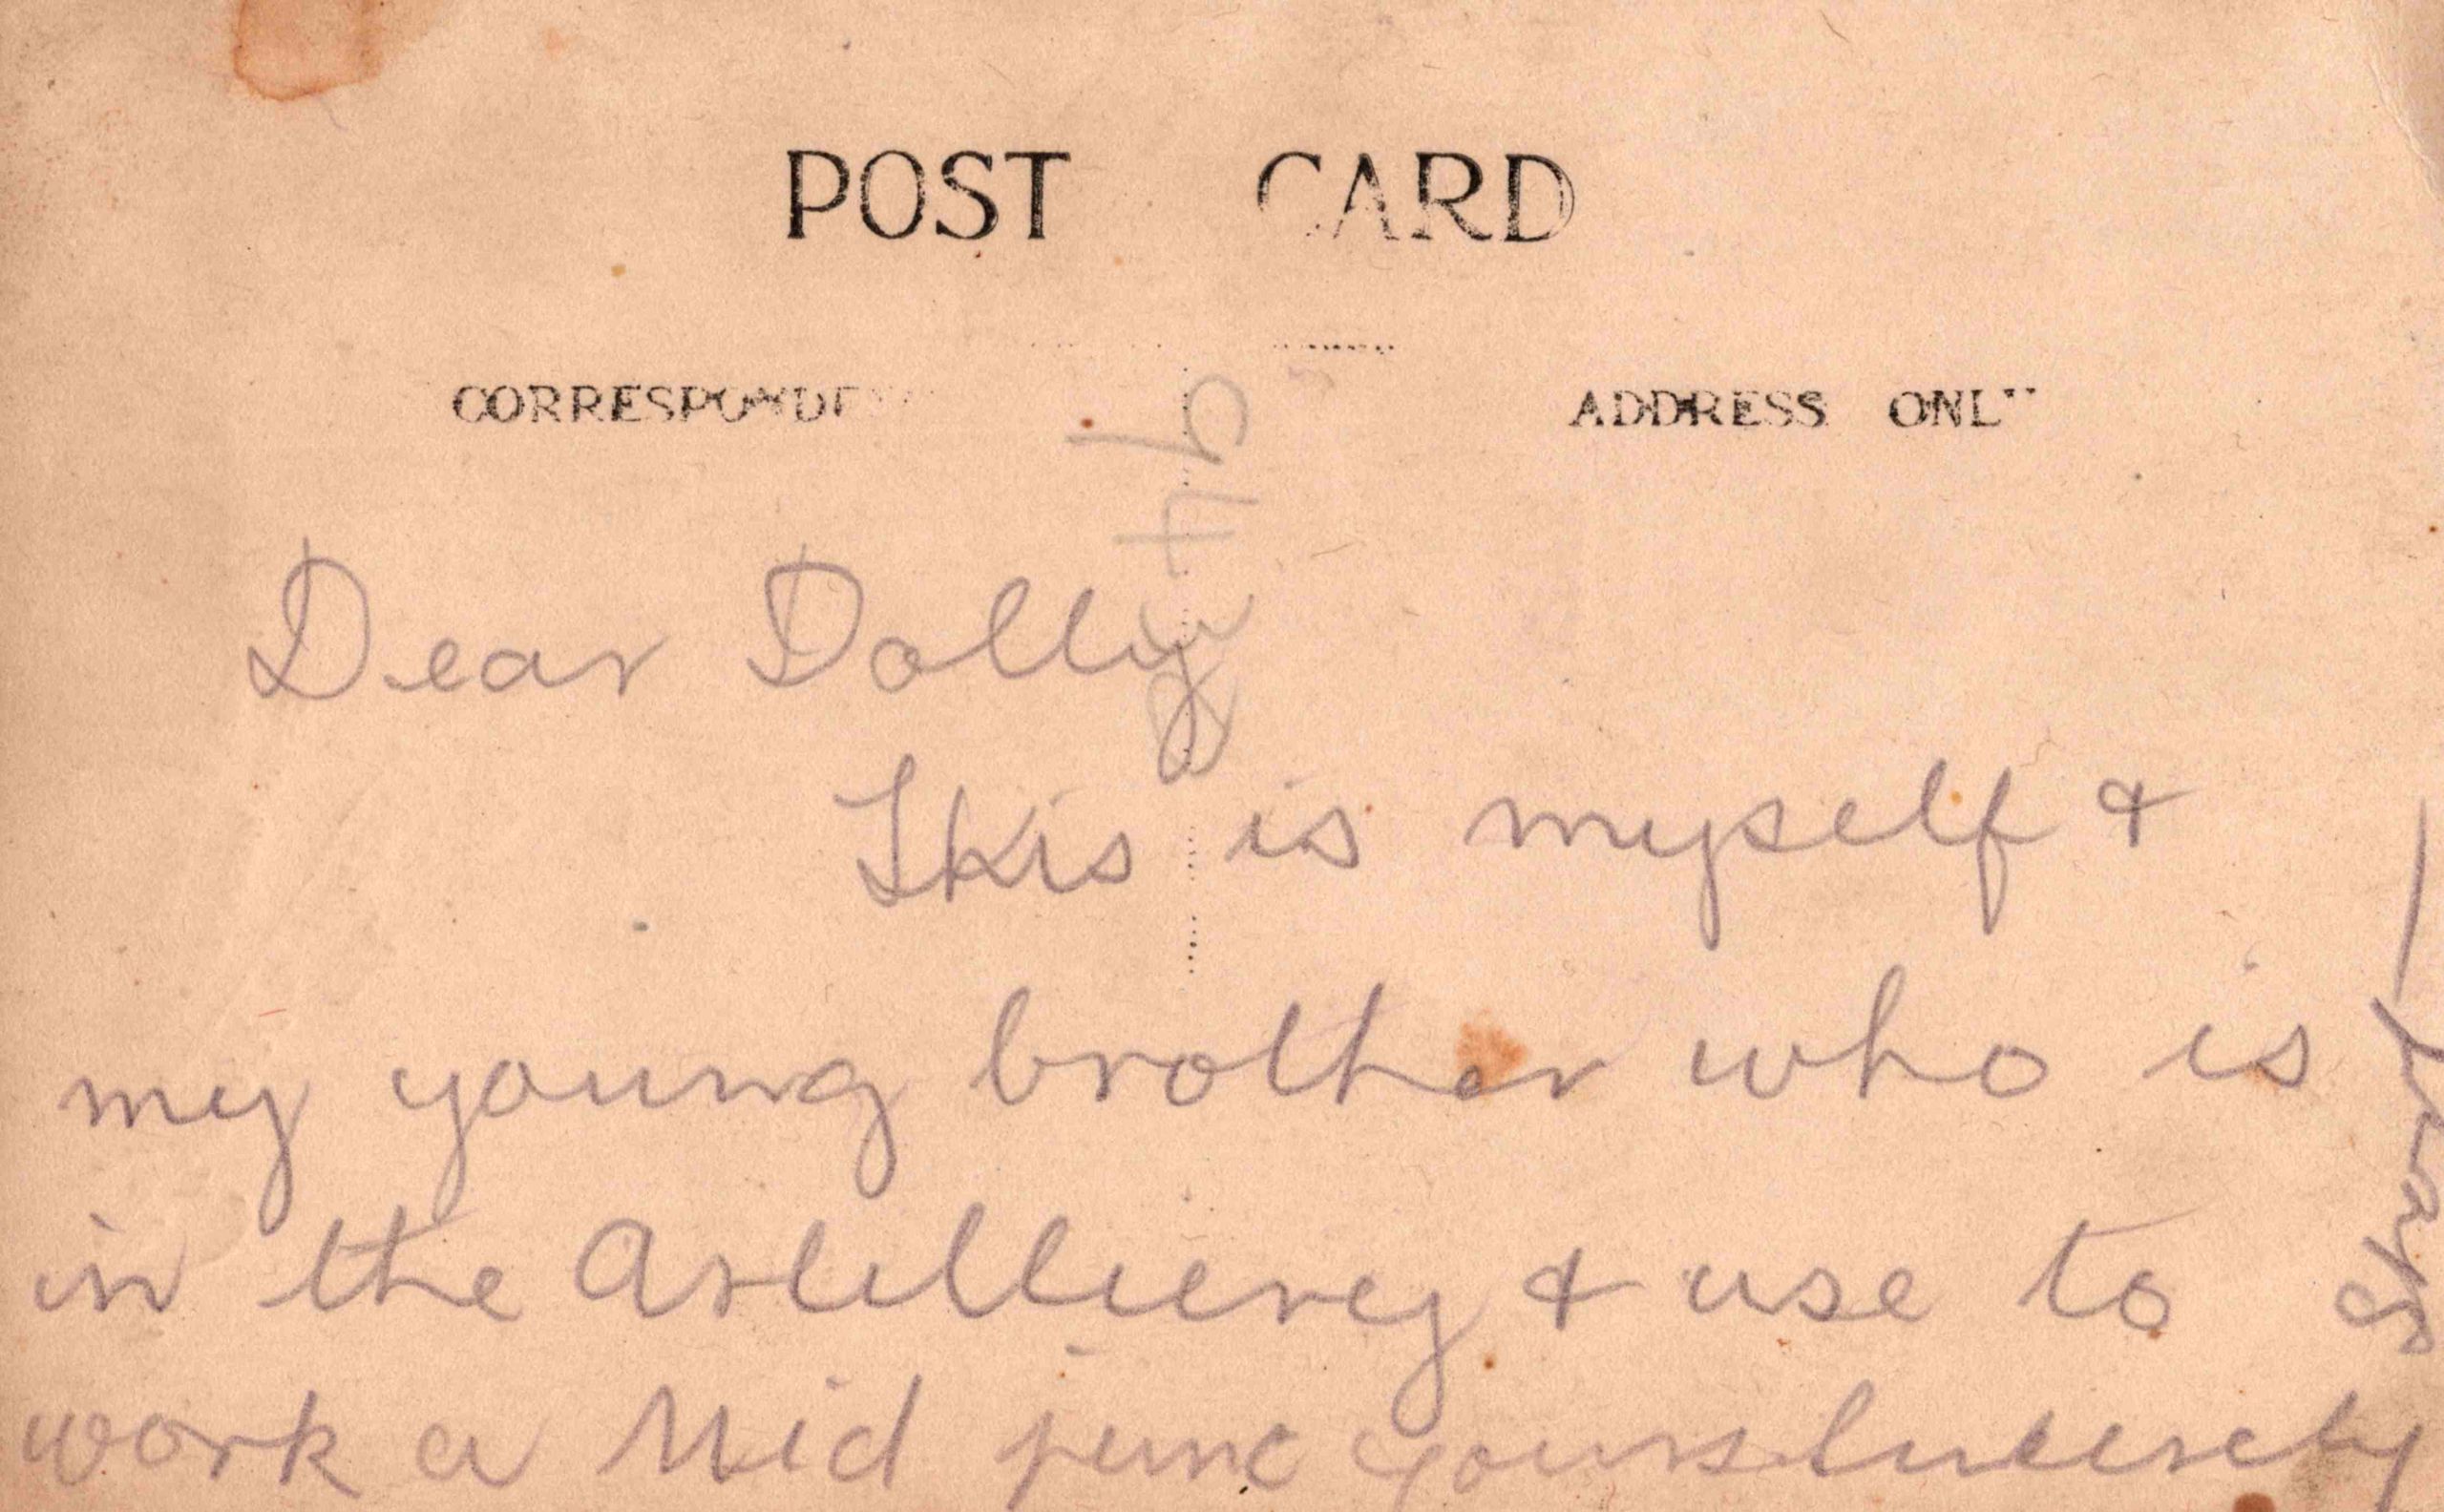 POST CARD
CORRESPONDE
ADDRESS ONL
Dear Dolly
This is myself &
my young brother who is
in the Artillierey & use to
work a Mid junc yours Sincerely